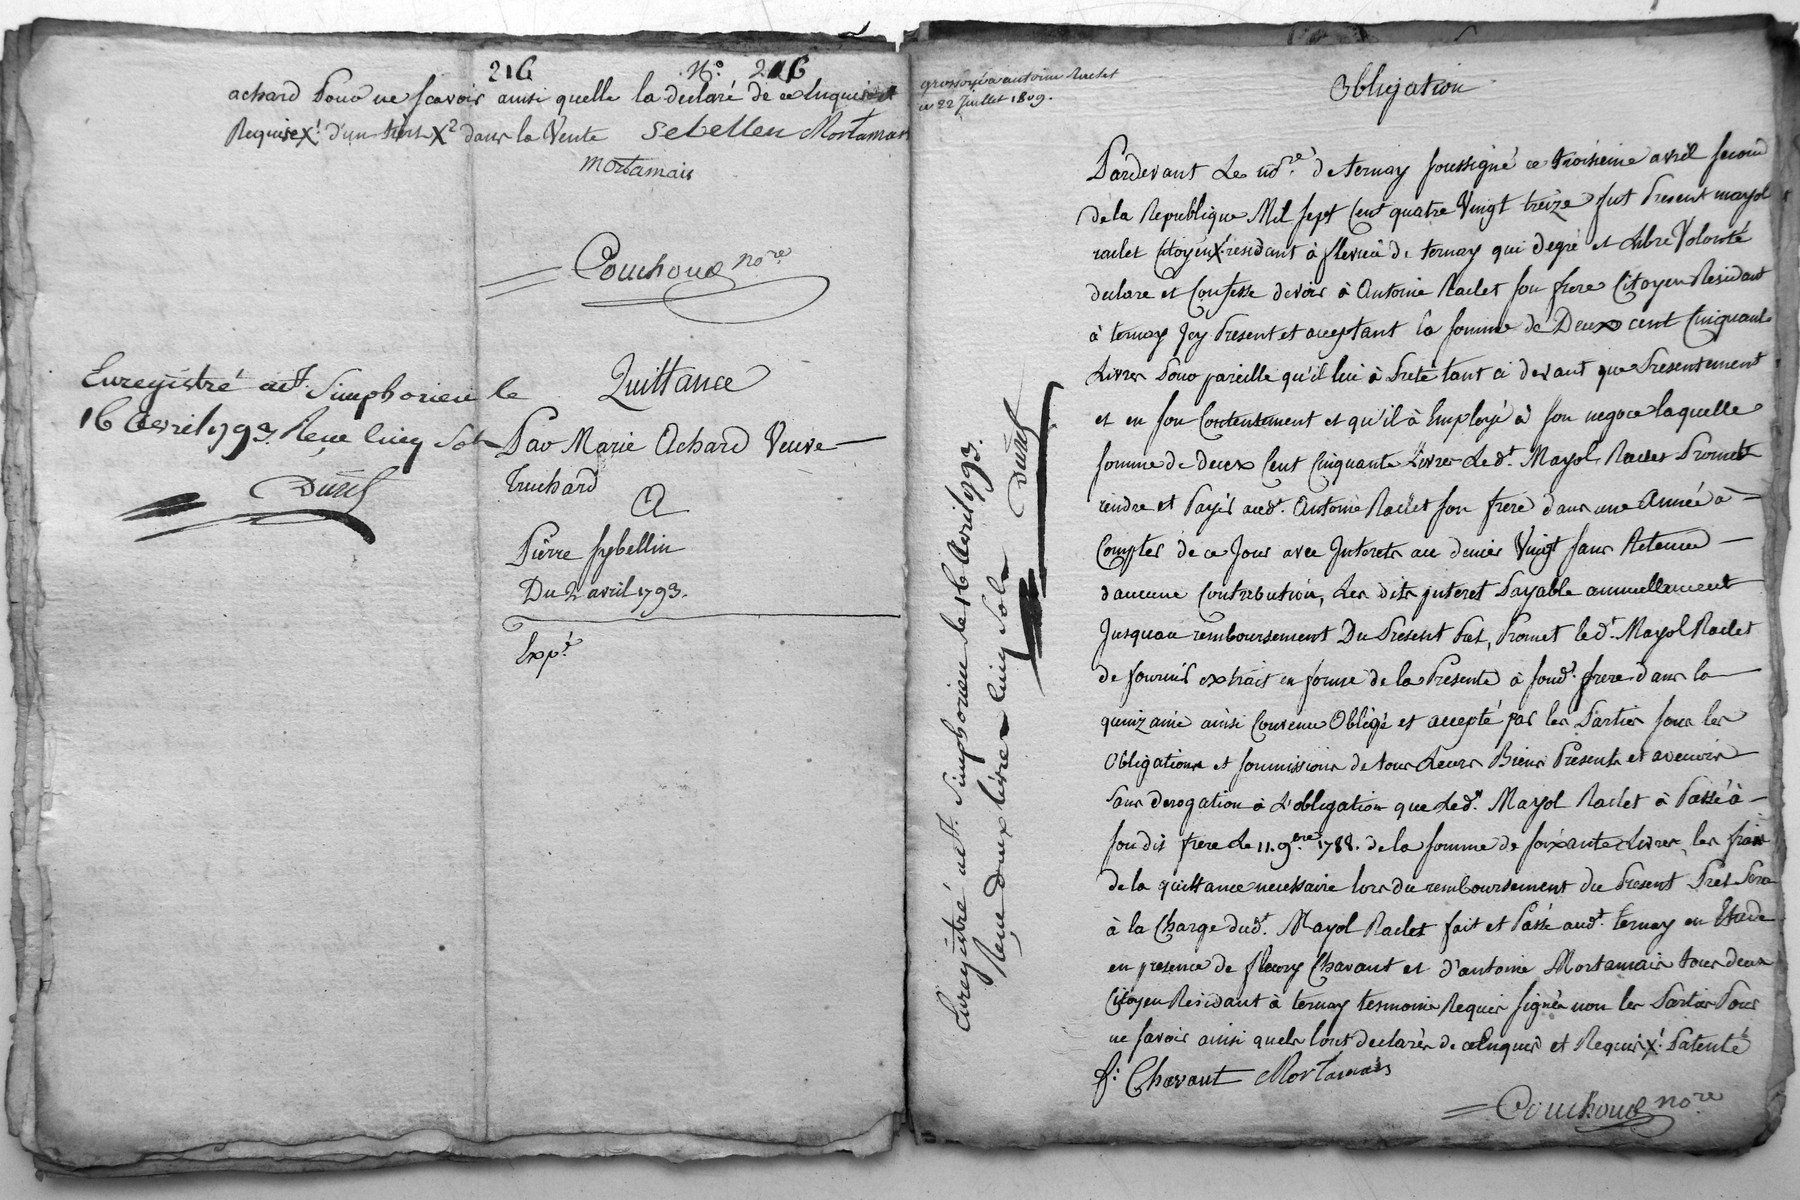 216
N.o 216
achard pour ne scavoir ainsi quelle la declaré de ce Enquise et
Requise X1. d'un tiers X2 dans la Vente Sebellen Mortamais
Mortamais
Couchoud no.re
Enregistré a St. Simphorien le
16 avril 1793. Reçu cinq sols
Quittance
Par Marie Achard Veuve
Truchard
A
Pierre sybellin
Du 2 avril 1793.
Exp.é
grossoyé a antoine Raclet
ce 22 juillet 1809.
Obligation
Pardevant Le no.re de ternay soussigné ce troisieme avril second
de la Republique Mil sept Cent quatre Vingt treize fut Present mayol
raclet Citoyen X1 residant à flevieu de ternay qui de gré et Libre Volonté
declare et Confesse devoir à Antoine Raclet son frere Citoyen Residant
à ternay Icy Present et acceptant la somme de Deux cent Cinquante
Livres Pour pareille qu'il lui à Preté tant ci devant que Presentement
et en son Contentement et qu'il à Employé à son negoce laquelle
somme de deux Cent Cinquante Livres Led.t Mayol Raclet Promet
rendre et Payer aud.t Antoine Raclet son frere dans une Année à
Compter de ce Jour avec Interets au denier Vingt sans Retenue
d'aucune Contribution, Les dits interet Payable annuellement
Jusqu'au remboursement Du Present Pret, Promet led.t Mayol Raclet
de fournir extrait en forme de la Presente à sond.t frere dans la
quinzaine ainsi Convenu Obligé et accepté par les Parties sous les
Obligations et soumissions de tous Leurs Biens Presents et avenirs
Sans derogation à L'obligation que Led.t Mayol Raclet à Passé à
son dit frere Le 11. 9.bre 1788. de la somme de soixante Livres, les frais
de la quittance necessaire lors du remboursement du Present Pret Sera
à la Charge dud.t Mayol Raclet fait et Passé aud.t ternay en Etude
en presence de fleury Chavant et d'antoine Mortamais tous deux
Citoyen Residant à ternay temoins Requis signés non les Parties Pour
ne savoir ainsi quels l'ont declarés de ce Enquis et Requis X1. Patenté
f. Chavant Mortamais
Couchoud no.re
Enregistré a St. Simphorien le 16 avril 1793.
Reçu deux livres cinq sols